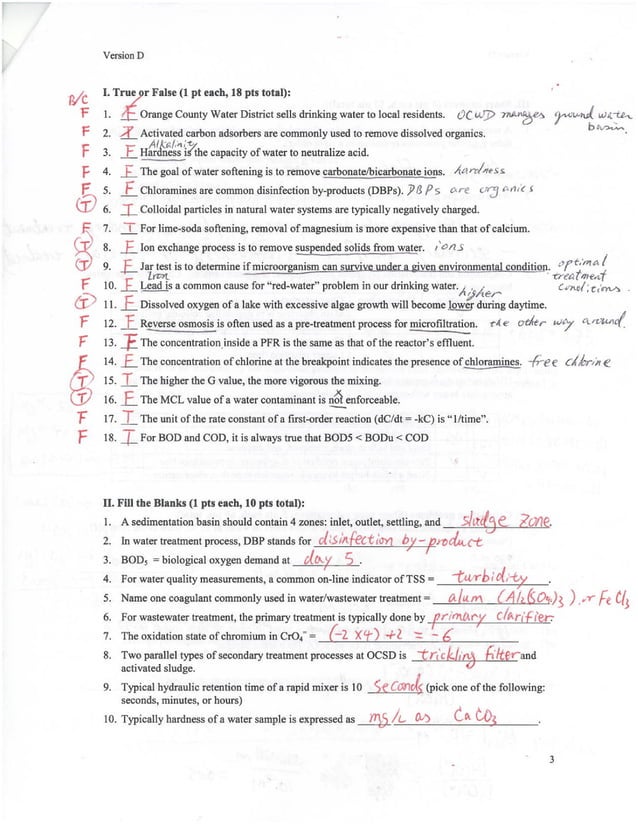 Version D
I. True or False (1 pt each, 18 pts total):
B/C
F 1. F Orange County Water District sells drinking water to local residents. OCWD manages ground water basin.
F 2. Activated carbon adsorbers are commonly used to remove dissolved organics.
Alkalinity
F 3. F Hardness is the capacity of water to neutralize acid.
F 4. F The goal of water softening is to remove carbonate/bicarbonate ions. hardness
F 5. F Chloramines are common disinfection by-products (DBPs). DBPs are organics
T 6. T Colloidal particles in natural water systems are typically negatively charged.
F 7. T For lime-soda softening, removal of magnesium is more expensive than that of calcium.
T 8. F Ion exchange process is to remove suspended solids from water. ions
T 9. F Jar test is to determine if microorganism can survive under a given environmental condition. optimal treatment conditions.
Iron
F 10. F Lead is a common cause for "red-water" problem in our drinking water.
higher
T 11. F Dissolved oxygen of a lake with excessive algae growth will become lower during daytime.
F 12. F Reverse osmosis is often used as a pre-treatment process for microfiltration. the other way around.
F 13. F The concentration inside a PFR is the same as that of the reactor's effluent.
F 14. F The concentration of chlorine at the breakpoint indicates the presence of chloramines. free chlorine
T 15. T The higher the G value, the more vigorous the mixing.
T 16. F The MCL value of a water contaminant is not enforceable.
F 17. T The unit of the rate constant of a first-order reaction (dC/dt = -kC) is "1/time".
F 18. T For BOD and COD, it is always true that BOD5 < BODu < COD
II. Fill the Blanks (1 pts each, 10 pts total):
1. A sedimentation basin should contain 4 zones: inlet, outlet, settling, and sludge zone.
2. In water treatment process, DBP stands for disinfection by-product
3. BOD5 = biological oxygen demand at day 5.
4. For water quality measurements, a common on-line indicator of TSS = turbidity.
5. Name one coagulant commonly used in water/wastewater treatment = alum (Al2(SO4)3) or FeCl3
6. For wastewater treatment, the primary treatment is typically done by primary clarifier.
7. The oxidation state of chromium in CrO4⁻ = (-2 x4) +2 = -6
8. Two parallel types of secondary treatment processes at OCSD is trickling filter and
activated sludge.
9. Typical hydraulic retention time of a rapid mixer is 10 seconds (pick one of the following:
seconds, minutes, or hours)
10. Typically hardness of a water sample is expressed as mg/L as CaCO3.
3